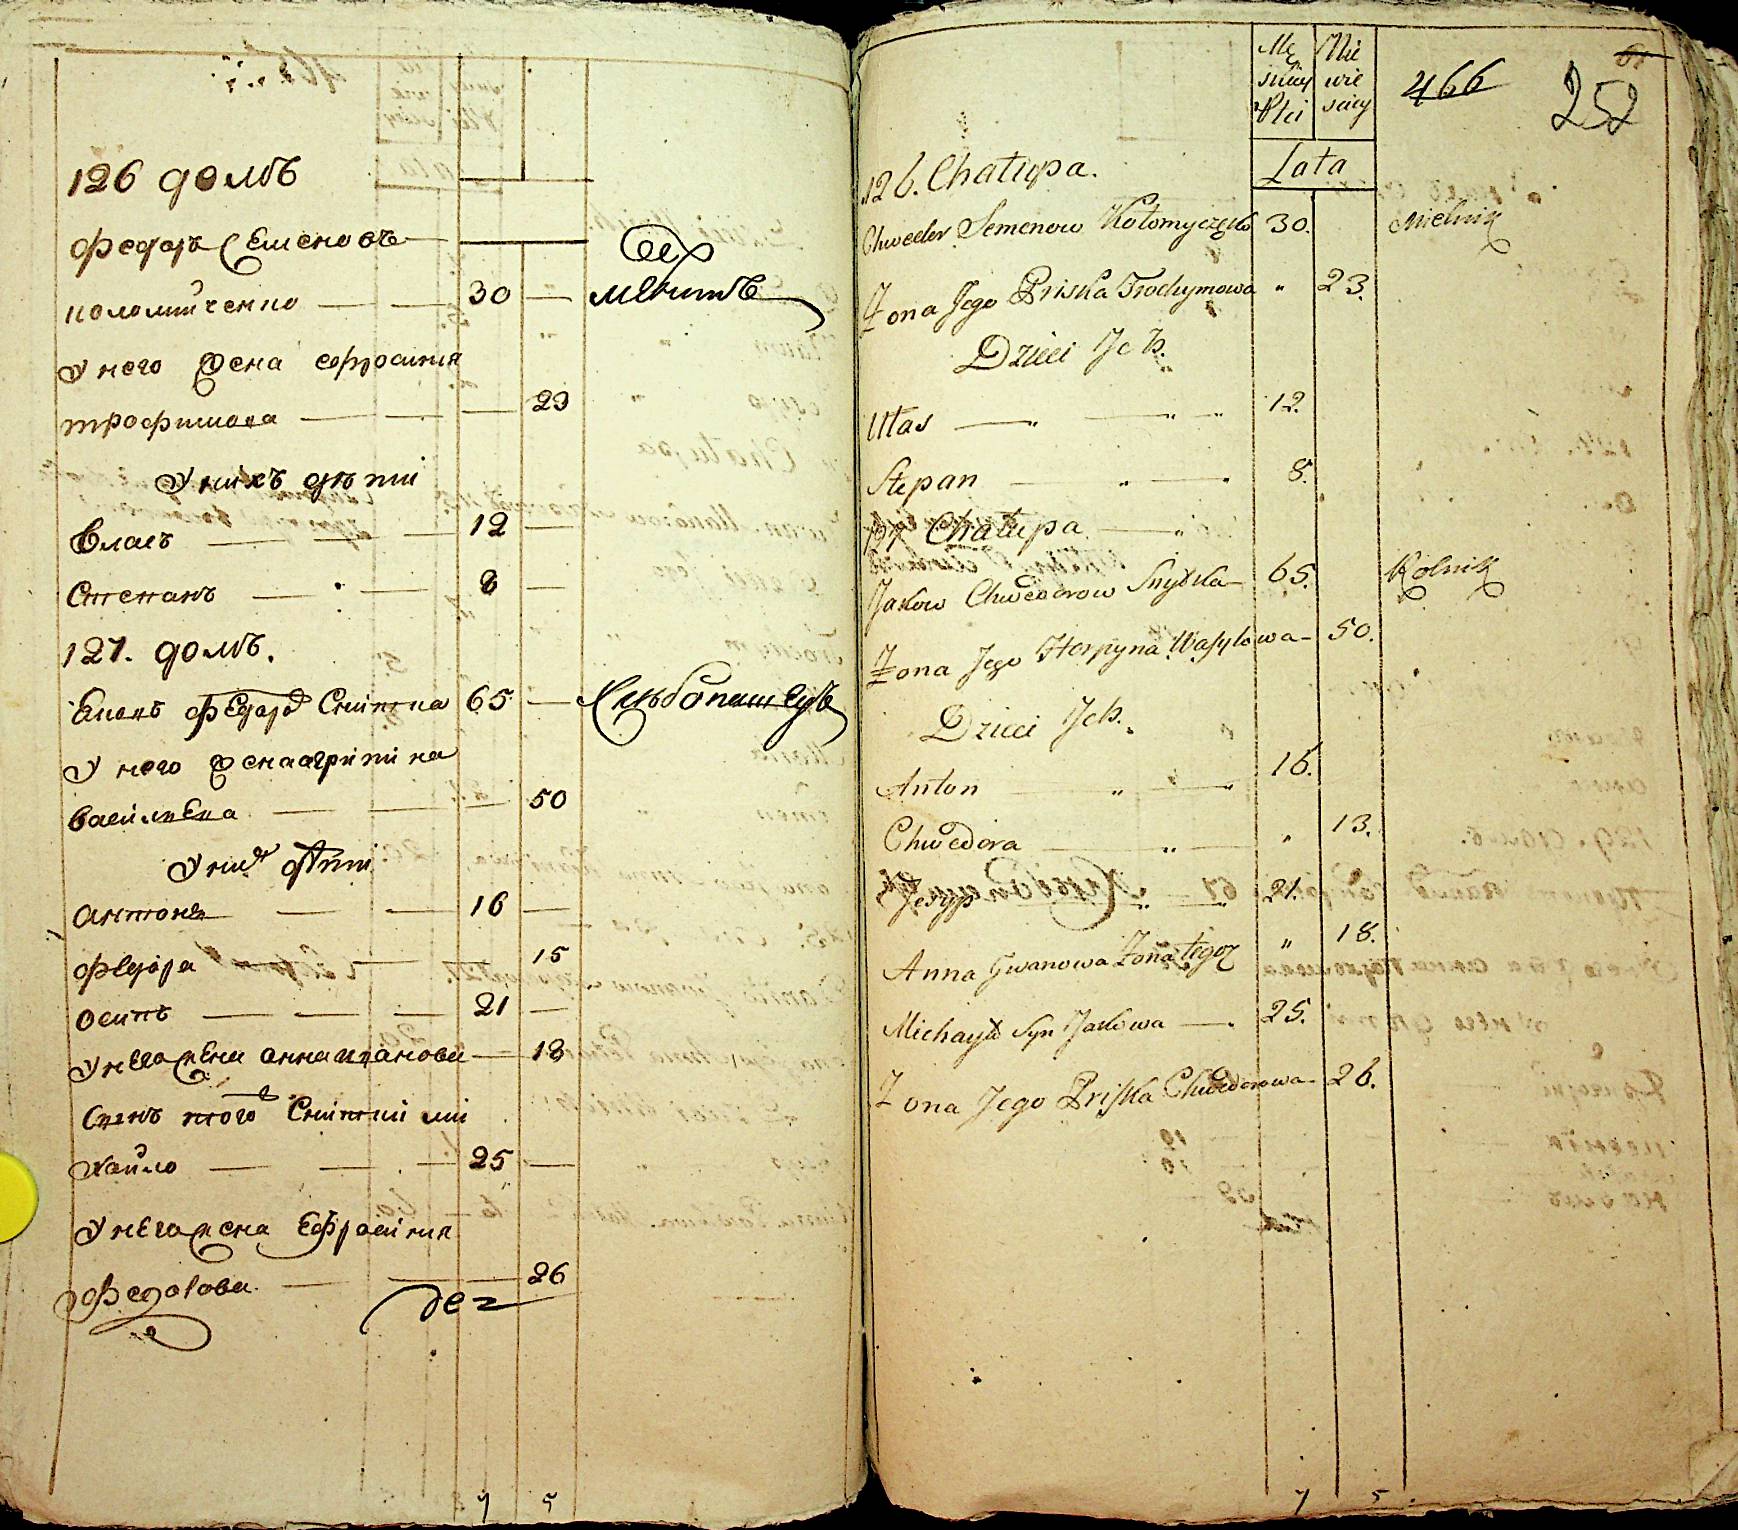 126 домъ
Федоръ Семеновъ
коломийченко — — 30 — мелникъ
У него жена ефросиния
трофимова — — — 23
У нихъ дѣти
Власъ — — — 12 —
Степанъ — — 8 —
127. домъ.
Яковъ Федоровъ Снитка 65 — Хлѣбопашецъ
У него жена агрипина
василиева — — — 50
У нихъ дѣти
антонъ — — 16 —
Федора — — — 15
осипъ — — — 21 —
У него жена анна иванова — 18
Сынъ того Снитки ми
хайло — — — 25 —
У него жена Ефросиния
Федорова — — — 26
7 5
Mę skiey Płci
Nie wie sciey
466
252
Lata
126. Chałupa.
Chwedor Semenow Kołomyczęko 30. Mielnik
Żona Jego Priska Trochymowa " 23.
Dzieci Jch.
Ułas — " — " " 12.
Stepan — " — " 8.
127 Chałupa — "
Jakow Chwedorow Snytka — 65. Rolnik
Żona Jego Horpyna Wasylowa — 50.
Dzieci Jch.
Anton — " — " 16.
Chwedora — " — " 13.
Jesyp — " — " 21.
Anna Jwanowa Żona tegoż " 18.
Michayło Syn Jakowa — 25.
Żona Jego Priska Chwedorowa — 26.
7 5